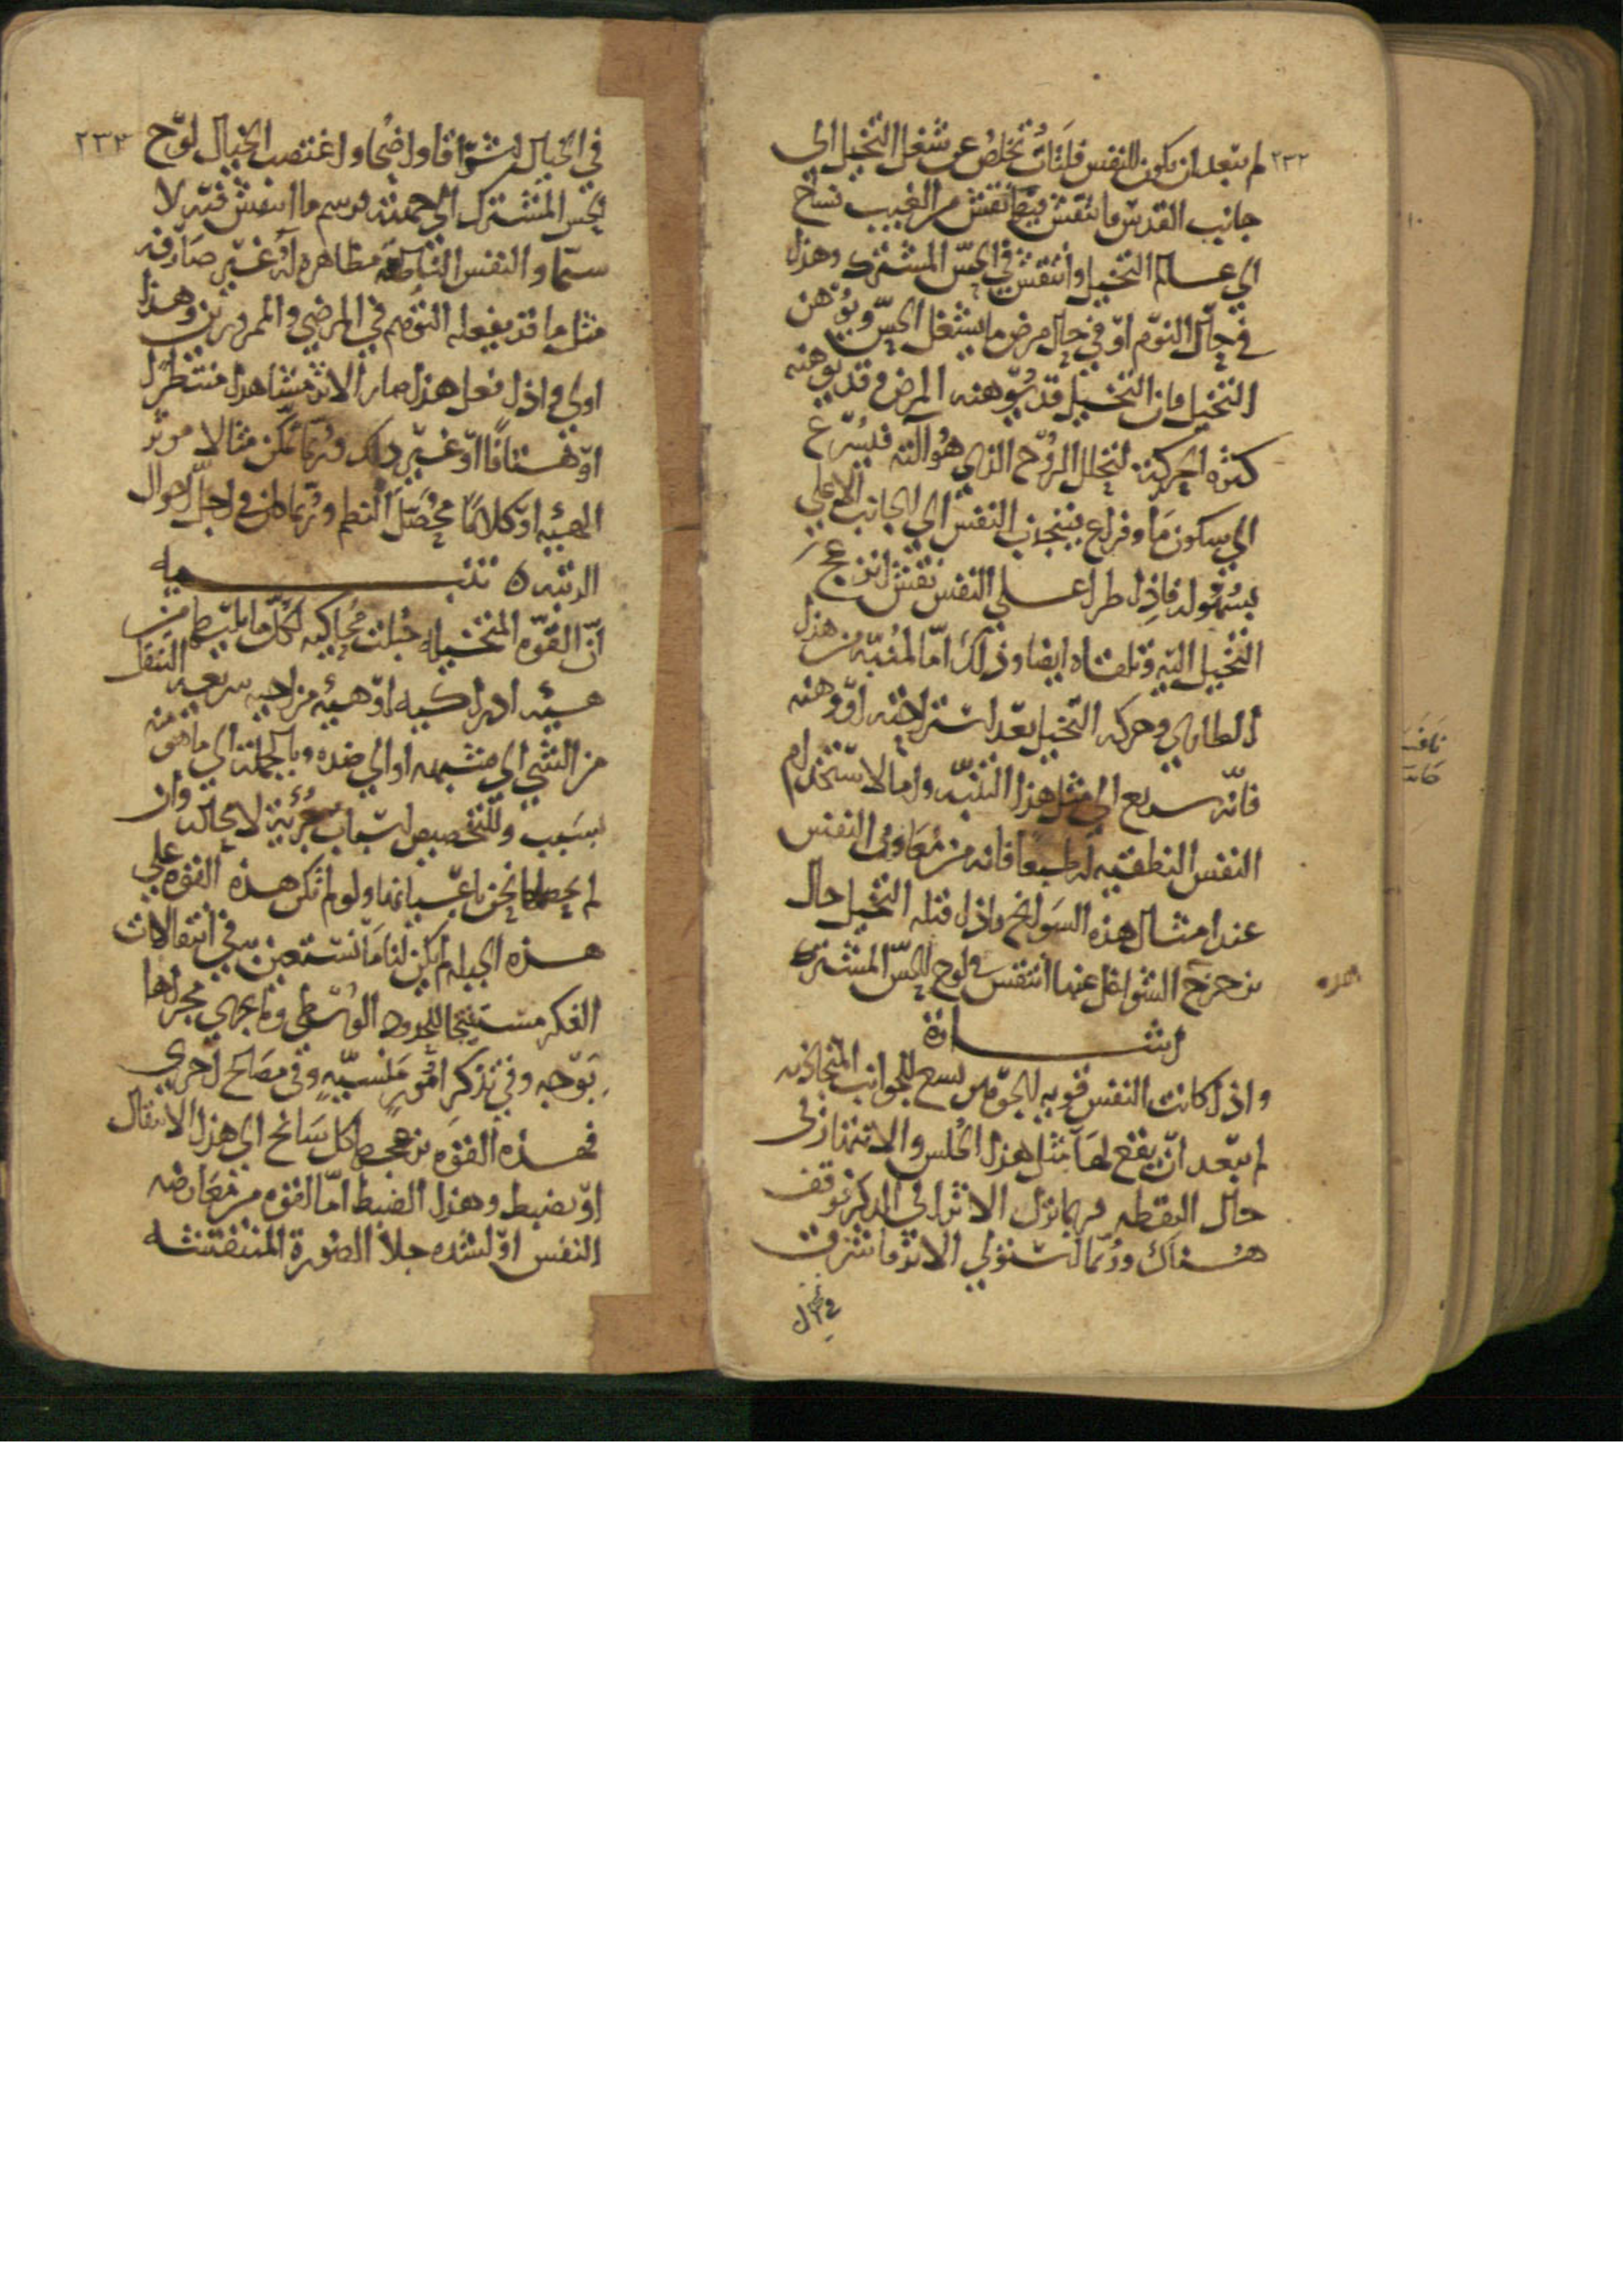 ٢٣٢
لم يبعد ان يكون للنفس فلتات تخلص عن شغل التخيل الى
جانب القدس ما نتقش فيها نقش من الغيب فساح
الي عالم التخيل وانتقش في الحسّ المشترك وهذا
في حال النوم اوّ في حال مرض ما يشغل الحسّ ويوهن
التخيل فان التخيل قد يوّهنه المرض وقد يوهنه
كثره الحركة لتخلل الروّح الذي هو آلته فيسّرع
الي سكون ما وفراغ فينجذب النفس الي الجانب الاعلي
بسهولة فاذا طرا علي النفس نقش انزعج
التخيل اليه وتلقاه ايضا وذلك امّا لمنبّه من هذا
الطاري وحركه التخيل بعّد استراحته اوّ وهنه
فانّه سريع الي مثل هذا التنبّه واما لاستخدام
النفس النطقيه له طبعا فانه من معاون النفس
عند امثال هذه السوانح واذا قبله التخيل حال
تزحزح الشواغل عنها انتقش في لوح الحسّ المشترك
اشارة
واذا كانت النفس قويه الجوهر يسع للجوانب المتجاذبه
لم يبّعد انّ يقع لها مثل هذا الخلس والانتهاز في
حال اليقظه فربما نزل الاثر الي الذكر فوقف
هناك وربّما استولي الاثر فاشرق
في الخيال
٢٣٣
في الخيال اشراقا واضحا واغتصب الخيال لوّح
الحس المشترك الي جهته فرسم ما انتقش فيه لا
سيّما والنفس الناطقه مظاهرة له غيّر صارفه
مثل ما قد يفعله التوّهم في المرضي والممرورين وهذا
اولي واذا فعل هذا صار الاثر مشاهدا منتظرا
اوّ هتافا اوّ غيّر ذلك وربما تمكن مثالا موفر
الهيئه اوّ كلامًا محصّل النظم وربما كان في اجل احوال
الزينه ه تنبيه
انّ القوّه المتخيله جبلت محاكيه لكلّ ما يليها من
هيئه ادراكيه اوّ هيئه مزاجيه سريعه التنقل
من الشي الي شبهه او الي ضده وبالجملة الي ما هو منه
بسبب وللتخصيص اسّباب جزئية لا محاله وان
لم يحصلها نحن باعّيانها ولو لم تكن هذه القوه علي
هذه الجبله لم يكن لنا ما نسّتعين به في انتقالات
الفكر مستنتجا للحدود الوسّطي وما يجري مجراها
بوّجه وفي تذكر امور منسيّه وفي مصالح اخري
فهذه القوه يزعجها كل سانح الي هذا الانتقال
اوّ يضبط وهذا الضبط امّا لقوه من معارضه
النفس اوّ لشده جلا الصورة المنتقشه